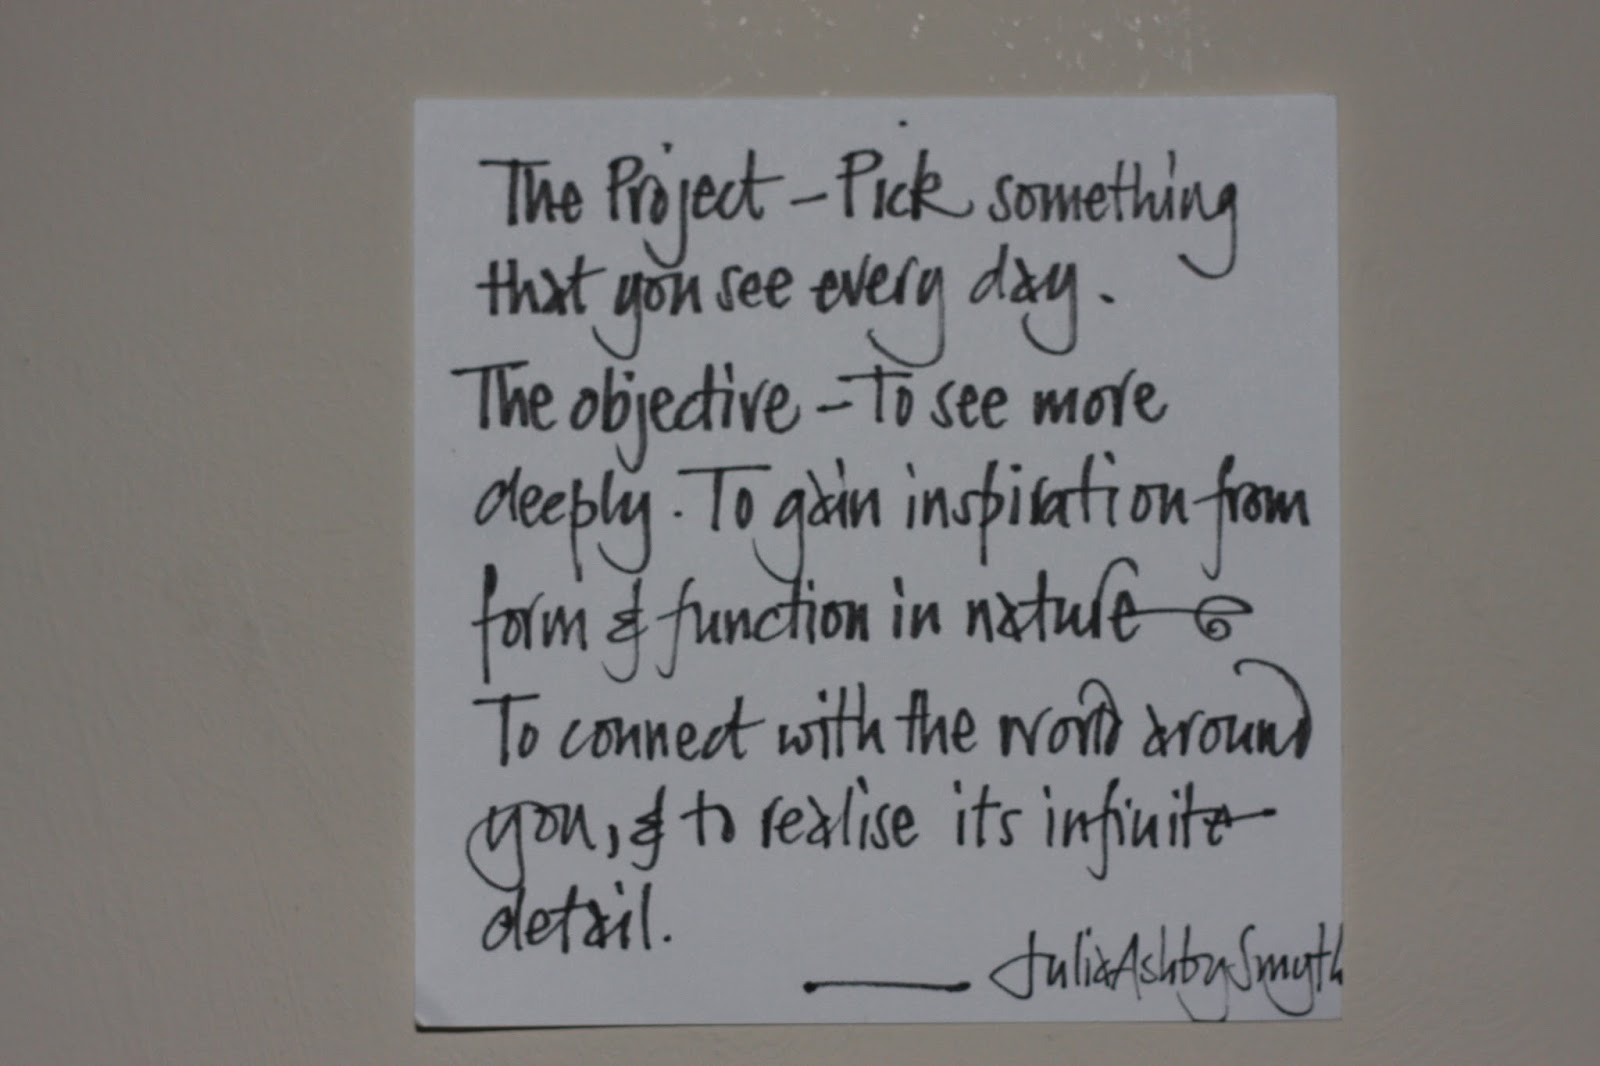 The Project - Pick something
that you see every day.
The objective - To see more
deeply. To gain inspiration from
form & function in nature
To connect with the world around
you, & to realise its infinite
detail.
Julia Ashby Smyth